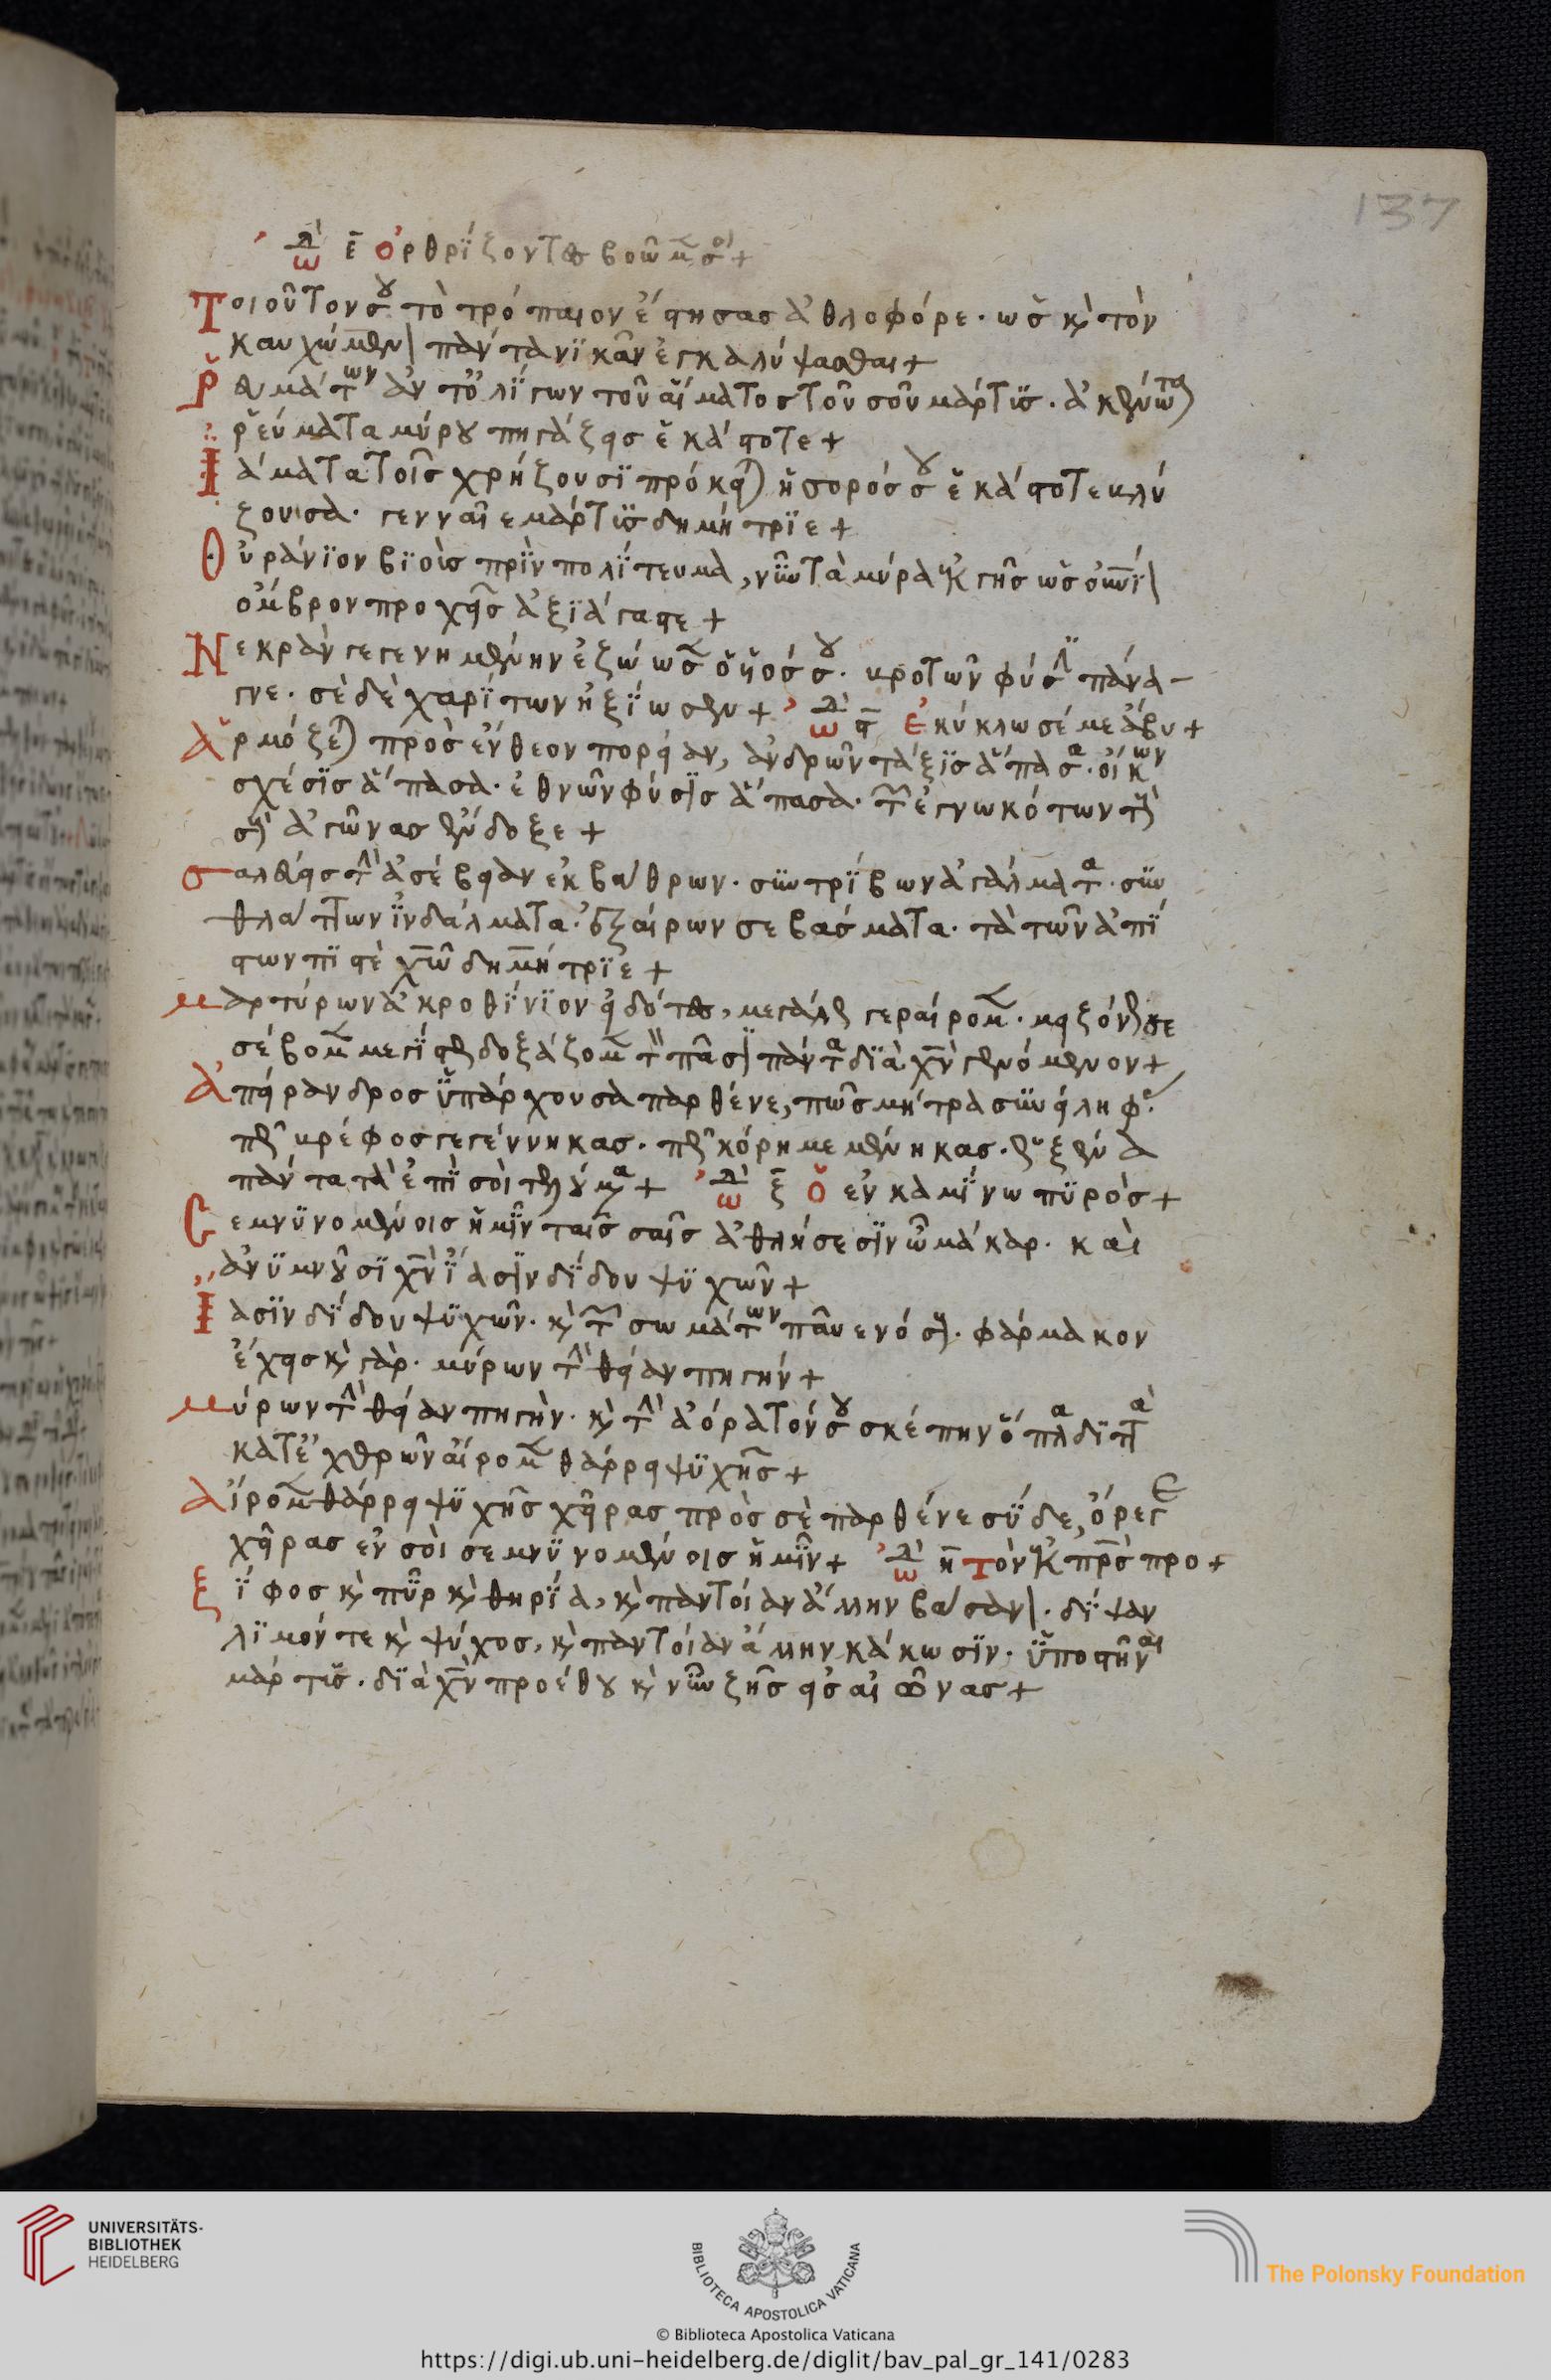 137
ὠδὴ ε̄ Ὀρθρίζοντες βοῶμέν σοι +
Τοιοῦτον σου τὸ τρόπαιον ἔστησας ἀθλοφόρε· ὡς καὶ τὸν
καυχώμενον πάντα νικᾶν ἐγκαλύψασθαι +
Ῥανμάτων ἀντ ὀλίγων τοῦ αἵματος τοῦ σοῦ μάρτυς· ἀκένωτα
ῥεύματα μύρου πηγάζεις ἑκάστοτε +
Ἰάματα τοῖς χρήζουσι πρόκειται ἡ σορός σου ἑκάστοτε βλύ
ζουσα· γενναῖε μάρτυς δημήτριε +
Οὐράνιον βιοὺς πρὶν πολίτευμα, νῦν τὰ μύρα ἐκ γῆς ὡς
ὄμβρον προχεῖς ἀξιάγαστε +
Νεκρὰν γεγενημένην ἐζώωσεν ὁ υἱός σου· βροτῶν φύσιν πάνα-
γνε· σὲ δὲ χαρίτων ἠξίωσεν + ὠδὴ ϛ̄ Ἐκύκλωσέ με ἄβυ +
Ἁρμόζεται πρὸς ἔνθεον πορείαν, ἀνδρῶν τάξις ἅπασα· οἴκων
σχέσις ἅπασα· ἐθνῶν φύσις ἅπασα· τῶν ἐγνωκότων τοὺς
σοὺς ἀγῶνας ἔνδοξε +
Σαλεύεις τὴν ἀσέβειαν ἐκ βάθρων· συντρίβων ἀγάλματα· συν
θλάττων ἰνδάλματα· ἐξαίρων σεβάσματα· τὰ τῶν ἀπί
στων πιστὲ χ̅υ̅ δημήτριε +
Μαρτύρων ἀκροθίνιον εἰδότες, μεγάλως γεραίρομεν· μειζόνως σε
σέβομεν μεγίστως δοξάζομεν τοῖς πᾶσι πάντα διὰ χ̅ν̅ γενόμενον +
Ἀπείρανδρος ὑπάρχουσα παρθένε, πῶς μήτρα συνείληφε·
πῶς βρέφος γεγέννηκας· πῶς κόρη μεμένηκας· ὦ ξένα
πάντα τὰ ἐπὶ σοὶ τελούμενα + ὠδὴ ζ̄ Ὁ ἐν καμίνω πυρὸς +
Σεμνυνομένοις ἡμῖν ταῖς σαῖς ἀθλήσεσιν ὦ μάκαρ· καὶ
ἀνυμνοῦσι χ̅ν̅ ἴασιν δίδου ψυχῶν +
Ἴασιν δίδου ψυχῶν· καὶ τῶν σωμάτων πᾶν ἐνόσως· φάρμακον
ἔχεις καὶ γὰρ· μύρων τὴν θείαν πηγήν +
Μύρων τὴν θείαν πηγὴν· καὶ τὴν ἀόρατόν σου σκέπην ὅπλα διττὰ
κατ' ἐχθρῶν αἴρομεν θάρρει ψυχῆς +
Αἴρομεν θάρρει ψυχῆς χεῖρας πρὸς σὲ παρθένε σὺ δε, ὄρεγε
χεῖρας ἐν σοὶ σεμνυνομένοις ἡμῖν + ὠδὴ η̄ Τὸν ἐκ π̅ρ̅ς προ +
Ξίφος καὶ πῦρ καὶ θηρία, καὶ παντοίαν ἄλλην βάσανον· δίψαν
λιμόν τε καὶ ψύχος, καὶ παντοίαν ἄλλην κάκωσιν· ὑποστῆναι
μάρτυς· διὰ χ̅ν̅ προέθου καὶ νῦν ζῆς εἰς αἰῶνας +
UNIVERSITÄTS-
BIBLIOTHEK
HEIDELBERG
BIBLIOTECA APOSTOLICA VATICANA
The Polonsky Foundation
© Biblioteca Apostolica Vaticana
https://digi.ub.uni-heidelberg.de/diglit/bav_pal_gr_141/0283